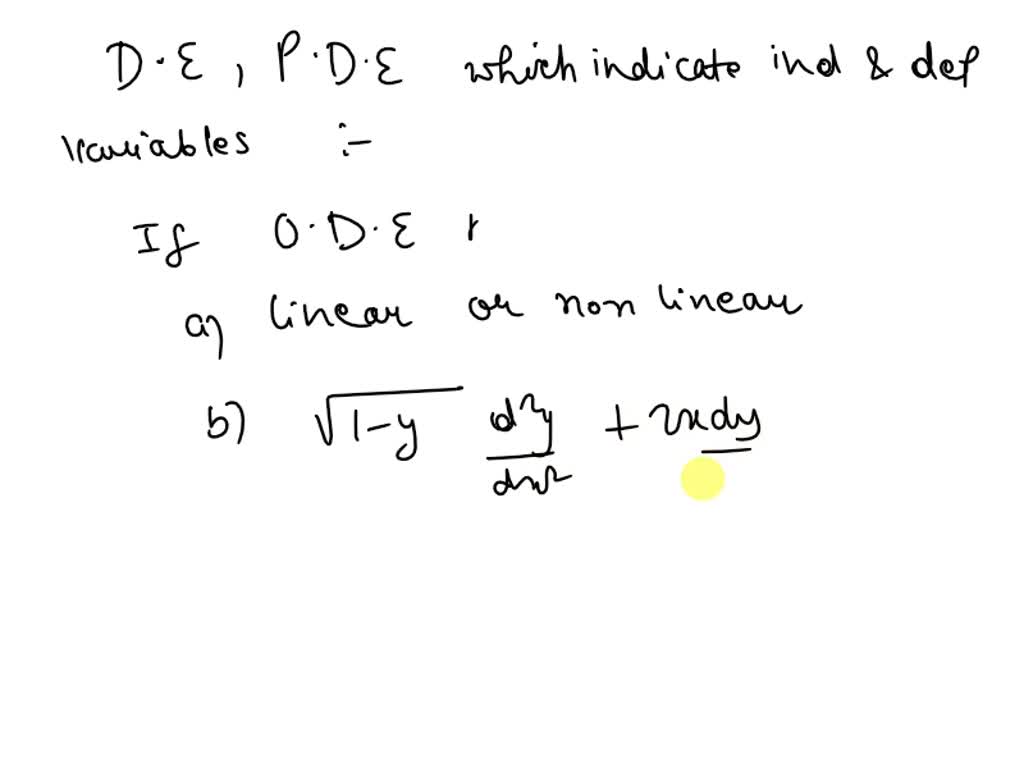 D.E, P.D.E which indicate ind & def
variables :-
If O.D.E
a) linear or non linear
b) √(1-y) d²y/dx² + 2xdy